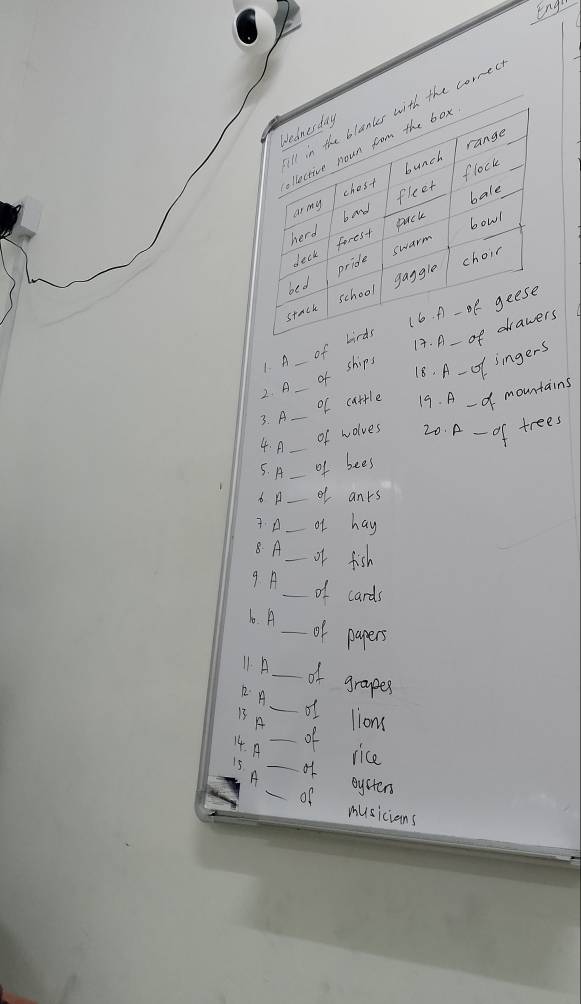 Engli
Wednesday
Fill in the blanks with the correct
collective noun from the box.
army chest bunch range
herd band fleet flock
deck forest pack bale
bed pride swarm bowl
stack school gaggle choir
1. A __ of birds
2. A __ of ships
3. A __ of cattle
4. A __ of wolves
5. A __ of bees
6 A __ of ants
7. A __ of hay
8. A __ of fish
9. A __ of cards
10. A __ of papers
11. A __ of grapes
12. A __ of lions
13 A __ of rice
14. A __ of oysters
15. A __ of musicians
16. A - of geese
17. A - of drawers
18. A - of singers
19. A - of mountains
20. A - of trees